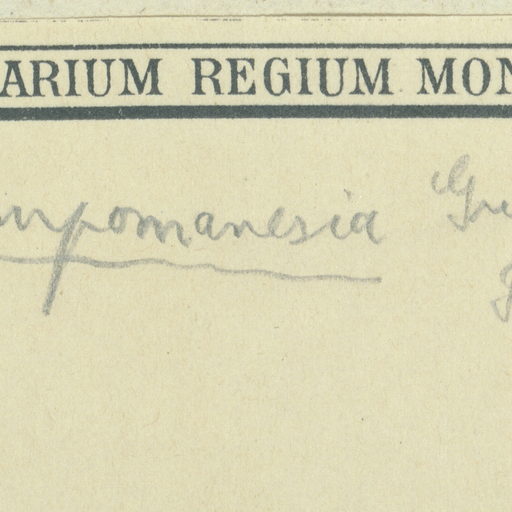 ARIUM REGIUM MON
mpomanesia